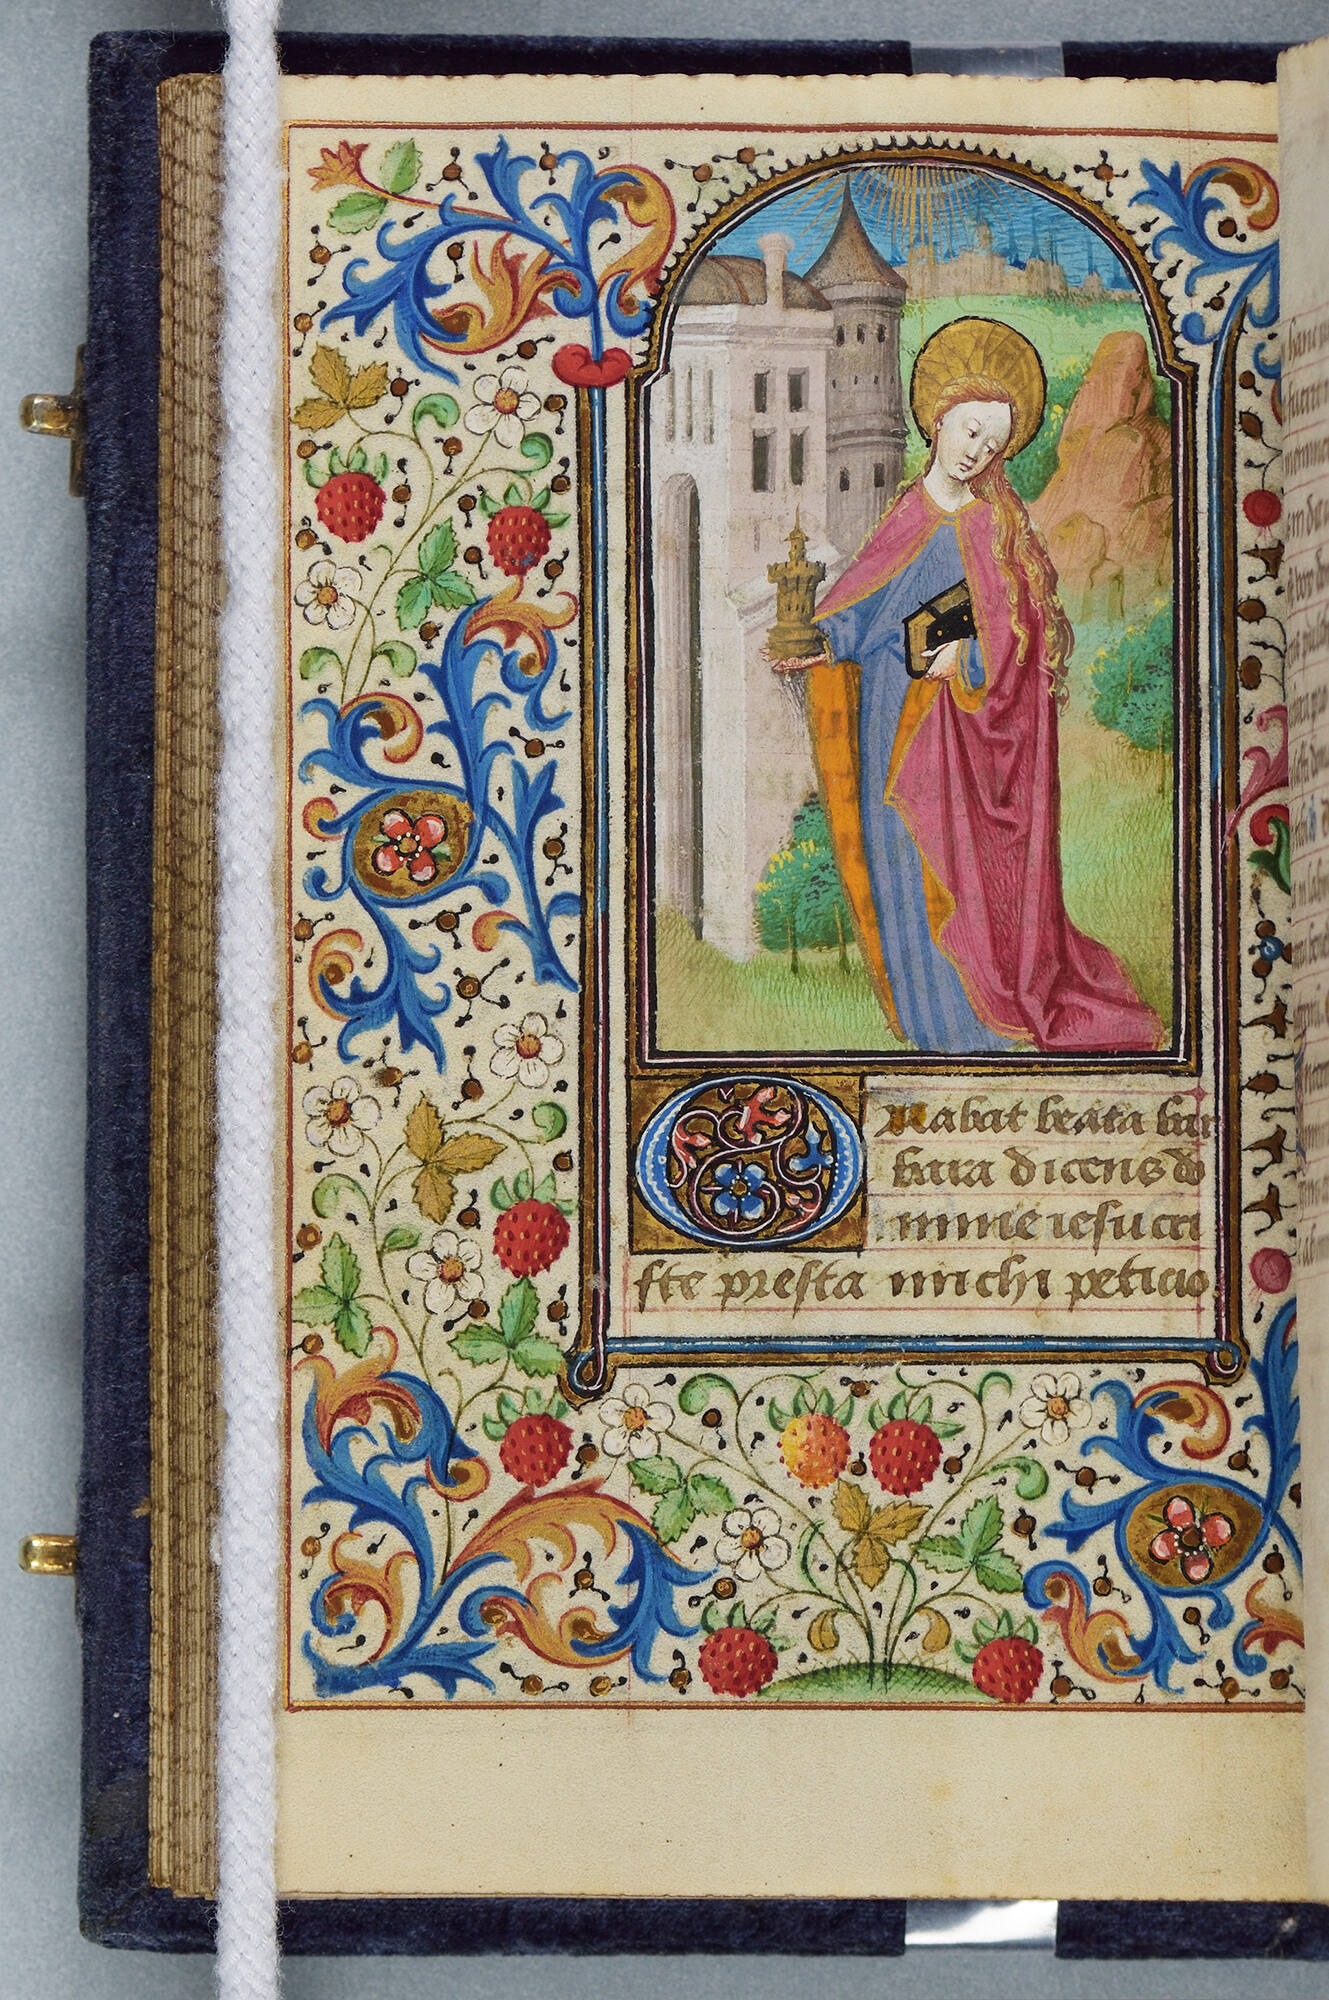 Orabat beata bar
bara dicens do
mine iesu cri
ste presta michi peticio